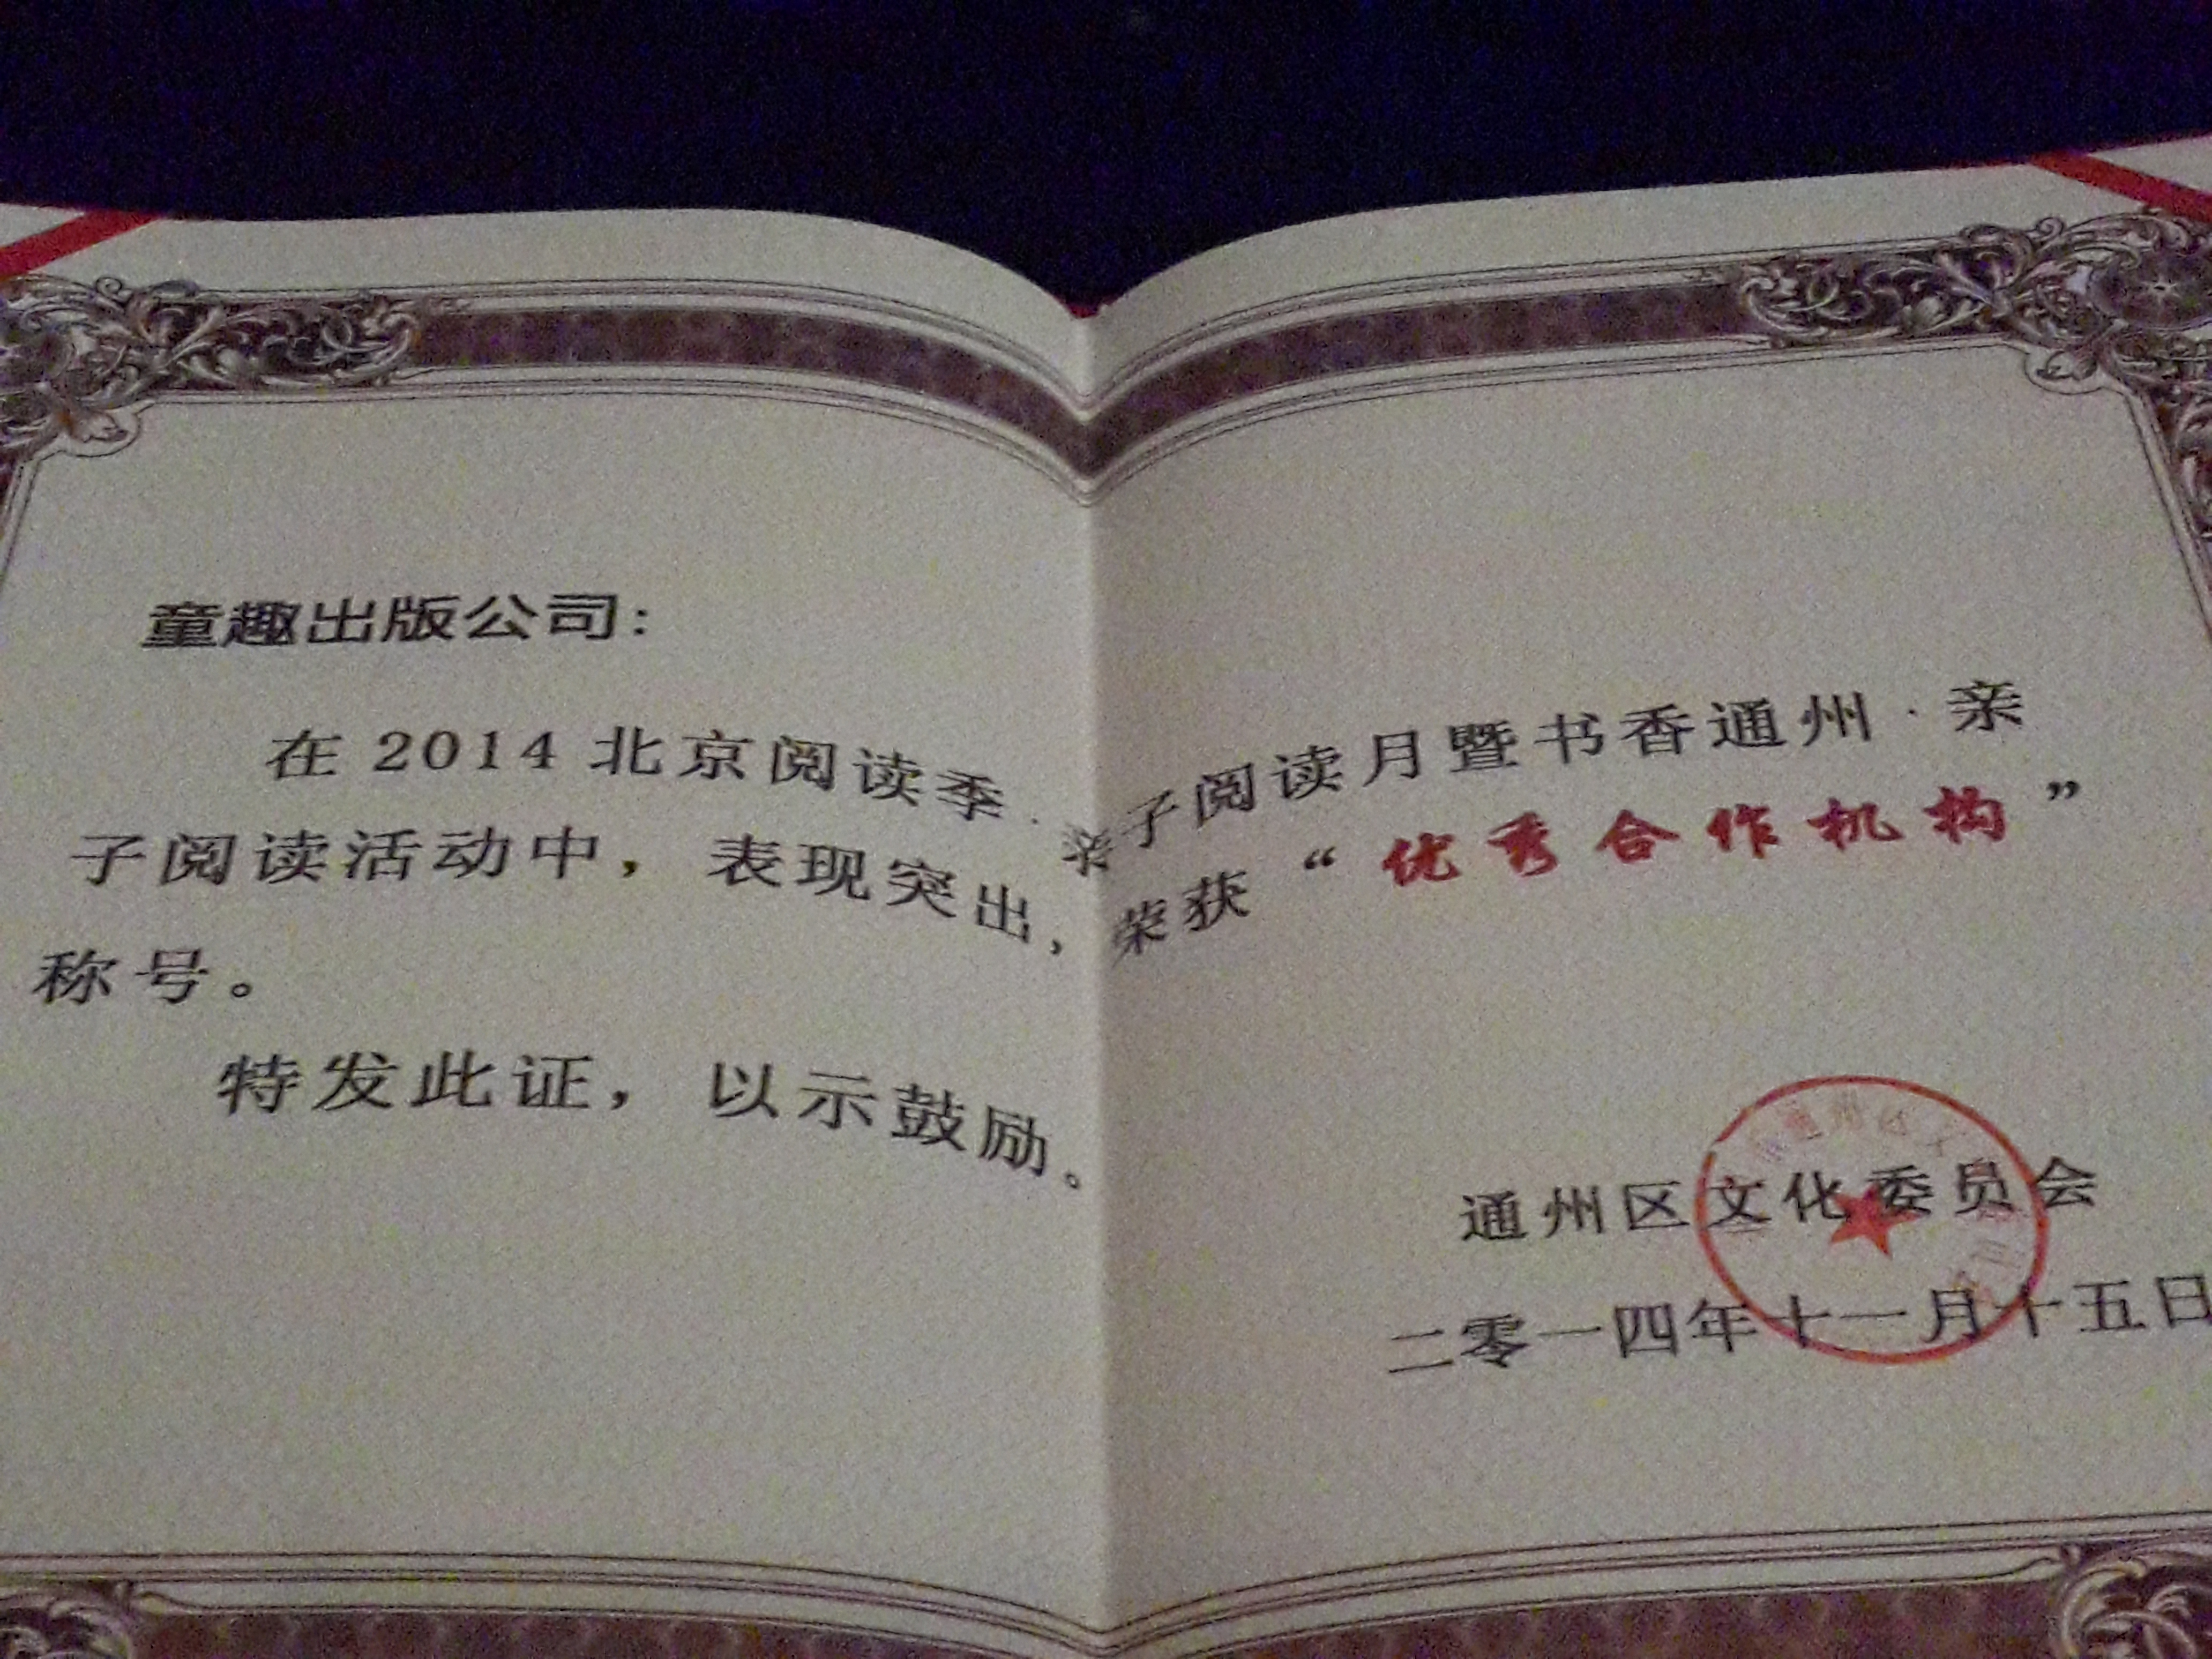 童趣出版公司：
在2014北京阅读季·亲子阅读月暨书香通州·亲
子阅读活动中，表现突出，荣获“优秀合作机构”
称号。
特发此证，以示鼓励。
通州区文化委员会
二零一四年十一月十五日